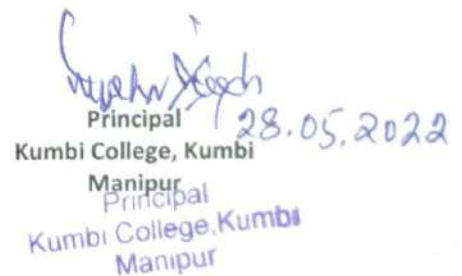 Principal
28.05.2022
Kumbi College, Kumbi
Manipur
Principal
Kumbi College, Kumbi
Manipur